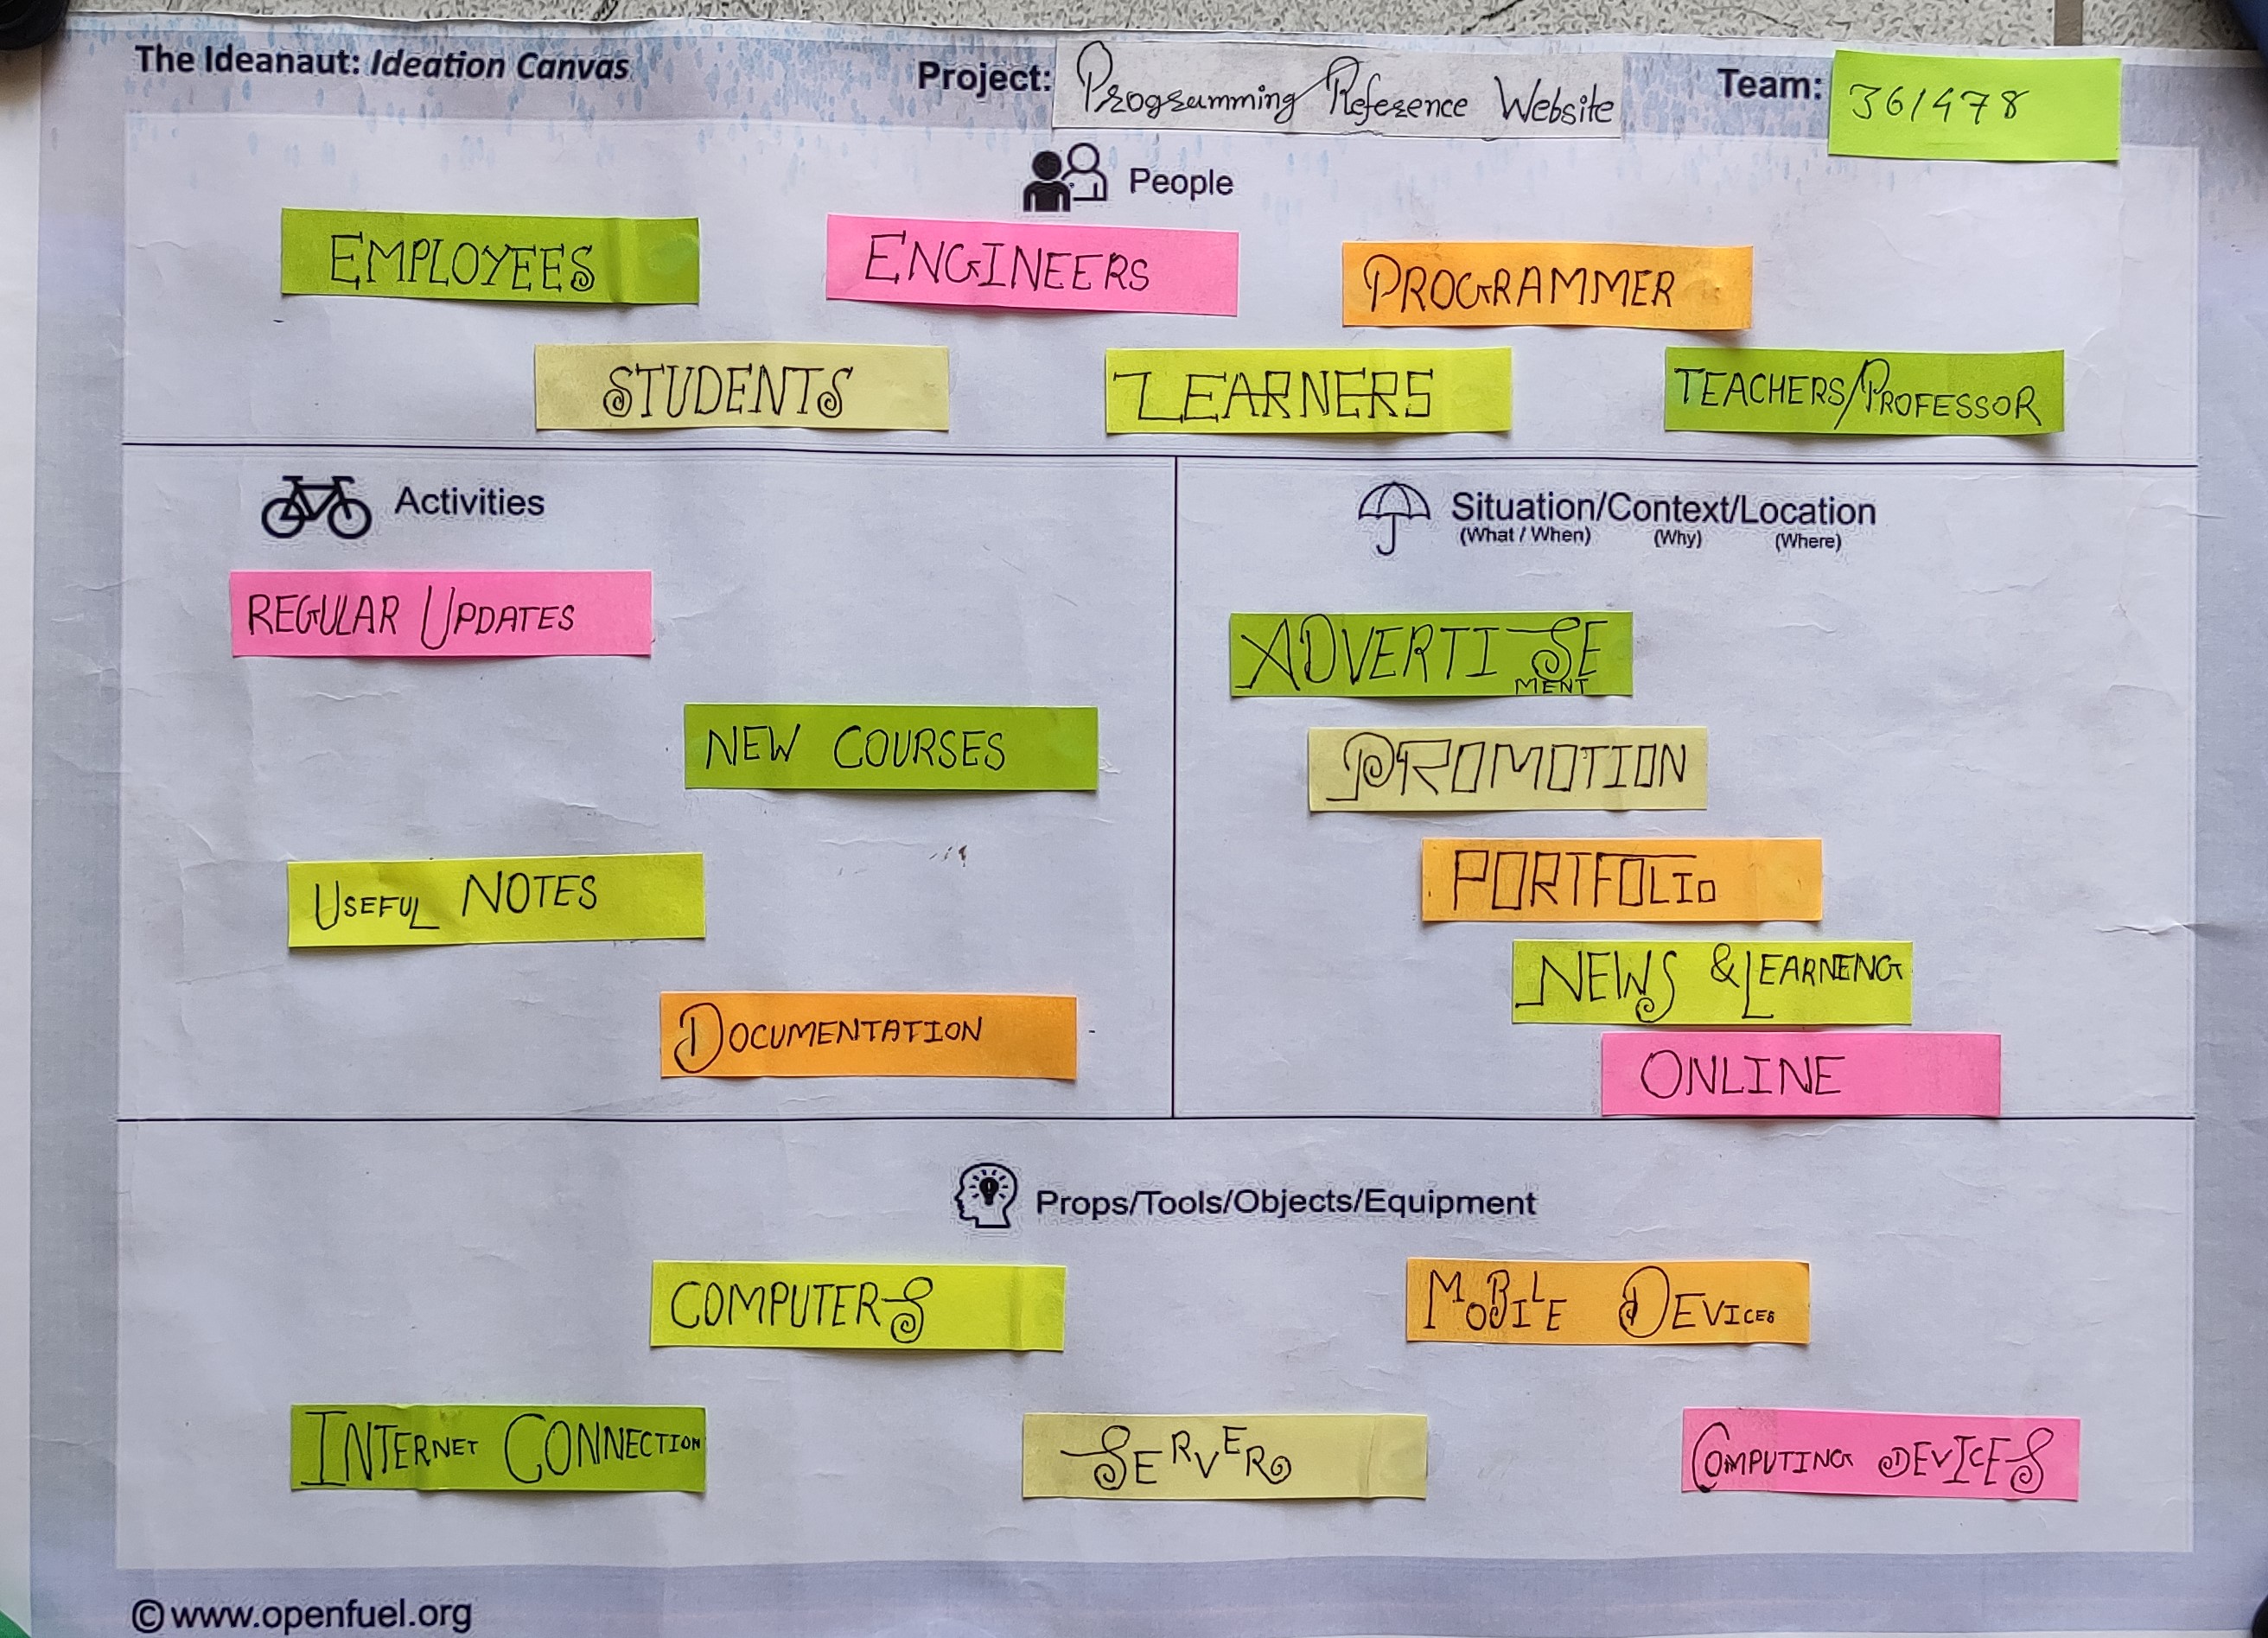 The Ideanaut: Ideation Canvas
Project: Programming Reference Website
Team: 361478
People
EMPLOYEES
ENGINEERS
PROGRAMMER
STUDENTS
LEARNERS
TEACHERS/PROFESSOR
Activities
REGULAR UPDATES
NEW COURSES
USEFUL NOTES
DOCUMENTATION
Situation/Context/Location
(What / When) (Why) (Where)
ADVERTISE
MENT
PROMOTION
PORTFOLIO
NEWS & LEARNENG
ONLINE
Props/Tools/Objects/Equipment
COMPUTERS
MOBILE DEVICES
INTERNET CONNECTION
SERVER
COMPUTING DEVICES
© www.openfuel.org